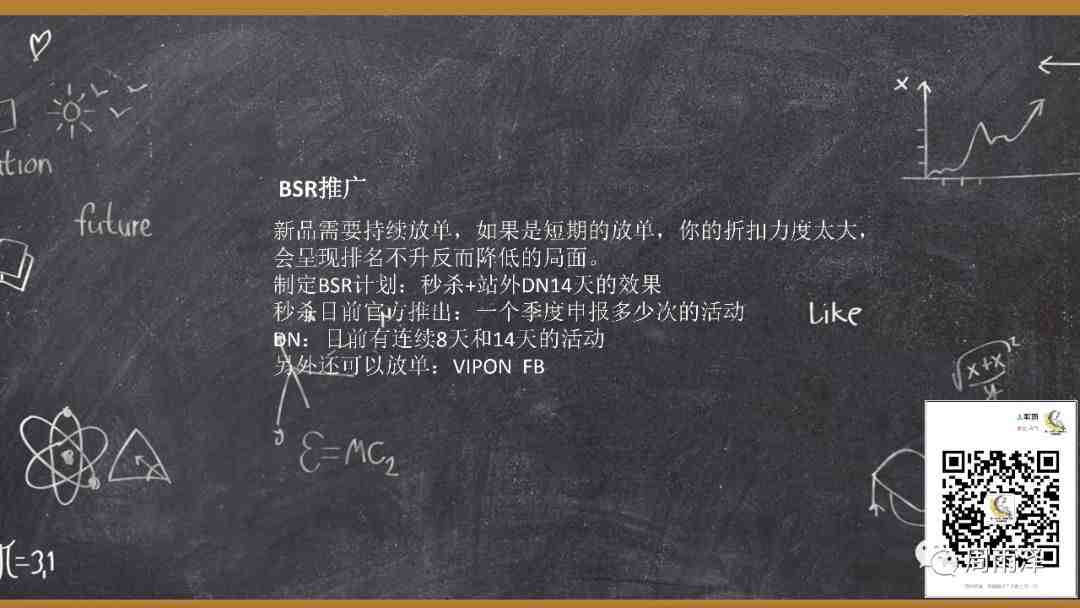 BSR推广
新品需要持续放单，如果是短期的放单，你的折扣力度太大，
会呈现排名不升反而降低的局面。
制定BSR计划：秒杀+站外DN14天的效果
秒杀目前官方推出：一个季度申报多少次的活动
DN：目前有连续8天和14天的活动
另外还可以放单：VIPON FB
x
tion
future
Like
x+x
2
ε=MC2
π=3,1
周雨泽